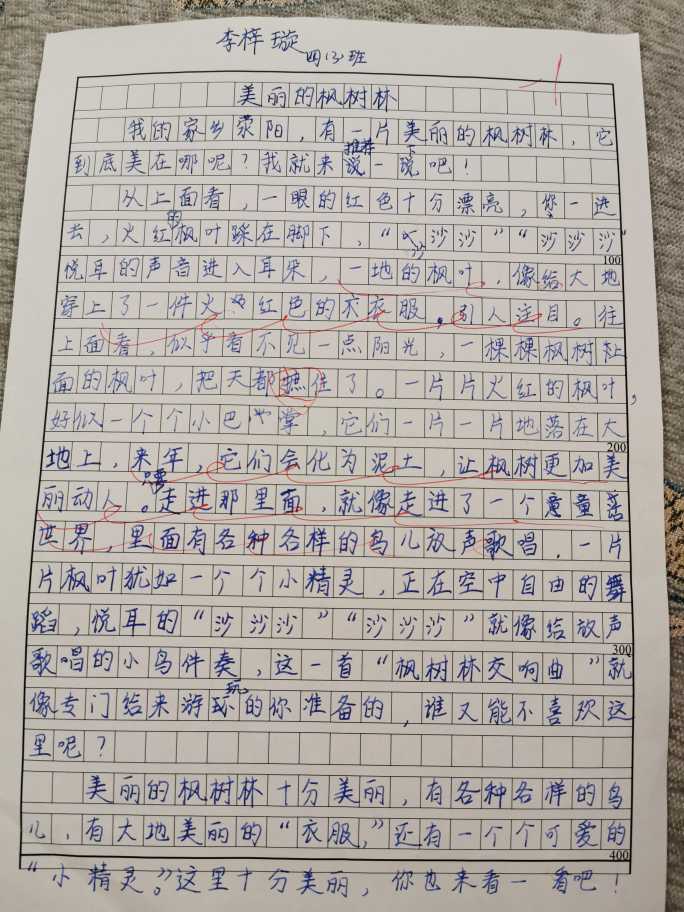 李梓璇
四(3)班
美丽的枫树林
我的家乡荥阳，有一片美丽的枫树林，它
推荐 下
到底美在哪呢？我就来说一说吧！
从上面看，一眼的红色十分漂亮，您一进
去，火红的枫叶踩在脚下，“沙沙沙”“沙沙沙”
100
悦耳的声音进入耳朵，一地的枫叶，像给大地
穿上了一件火红色的衣服，引人注目。往
上面看，似乎看不见一点阳光，一棵棵枫树上
面的枫叶，把天都遮住了。一片片火红的枫叶，
好似一个个小巴掌，它们一片一片地落在大
200
地上，来年，它们会化为泥土，让枫树更加美
丽动人。走进那里面，就像走进了一个童话
世界，里面有各种各样的鸟儿放声歌唱，一片
片枫叶犹如一个个小精灵，正在空中自由的舞
蹈，悦耳的“沙沙沙”“沙沙沙”就像给放声
300
歌唱的小鸟伴奏，这一首“枫树林交响曲”就
像专门给来游玩的你准备的，谁又能不喜欢这
里呢？
美丽的枫树林十分美丽，有各种各样的鸟
儿，有大地美丽的“衣服，”还有一个个可爱的
400
“小精灵。”这里十分美丽，你也来看一看吧！